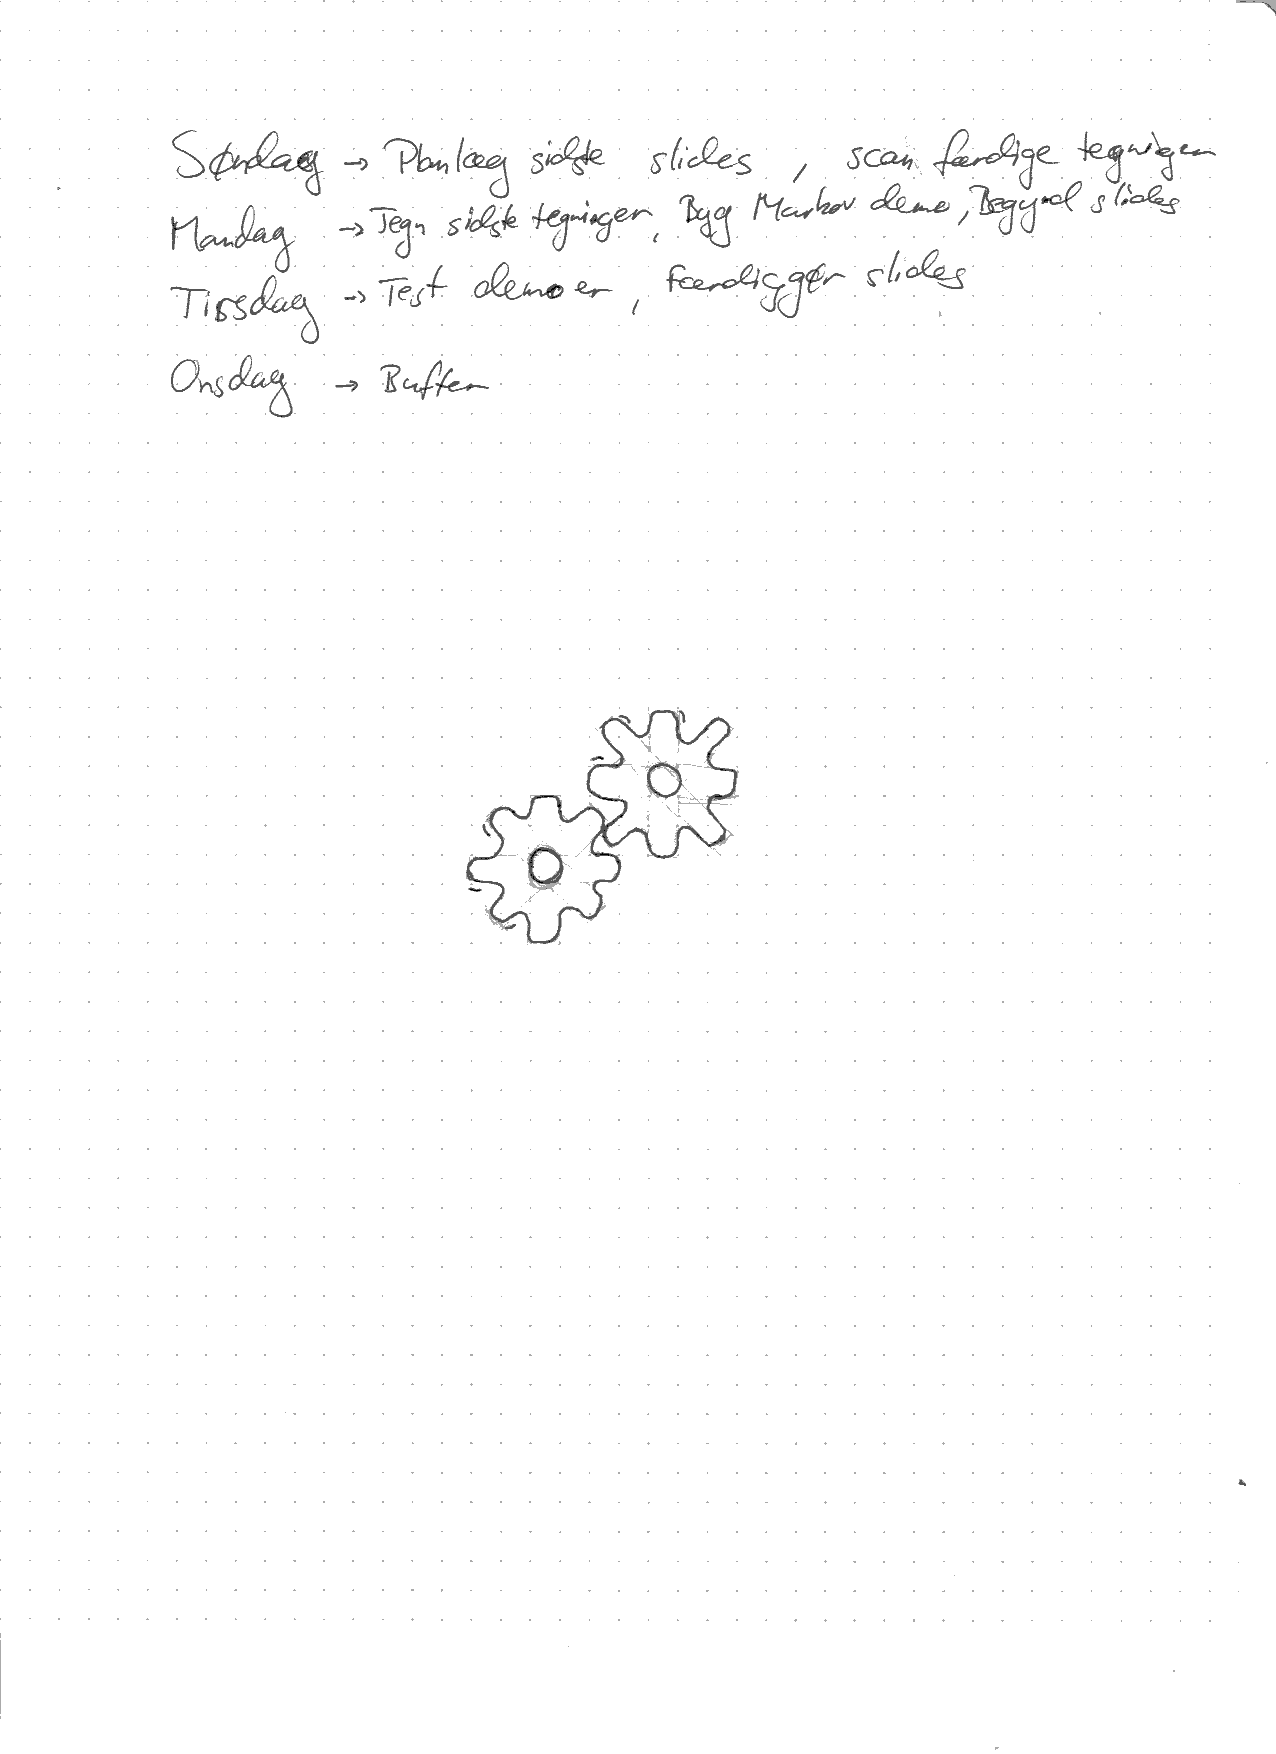 Søndag → Planlæg sidste slides, scan færdige tegninger
Mandag → Tegn sidste tegninger, Byg Markov demo, Begynd slides
Tirsdag → Test demoer, færdiggør slides
Onsdag → Buffer